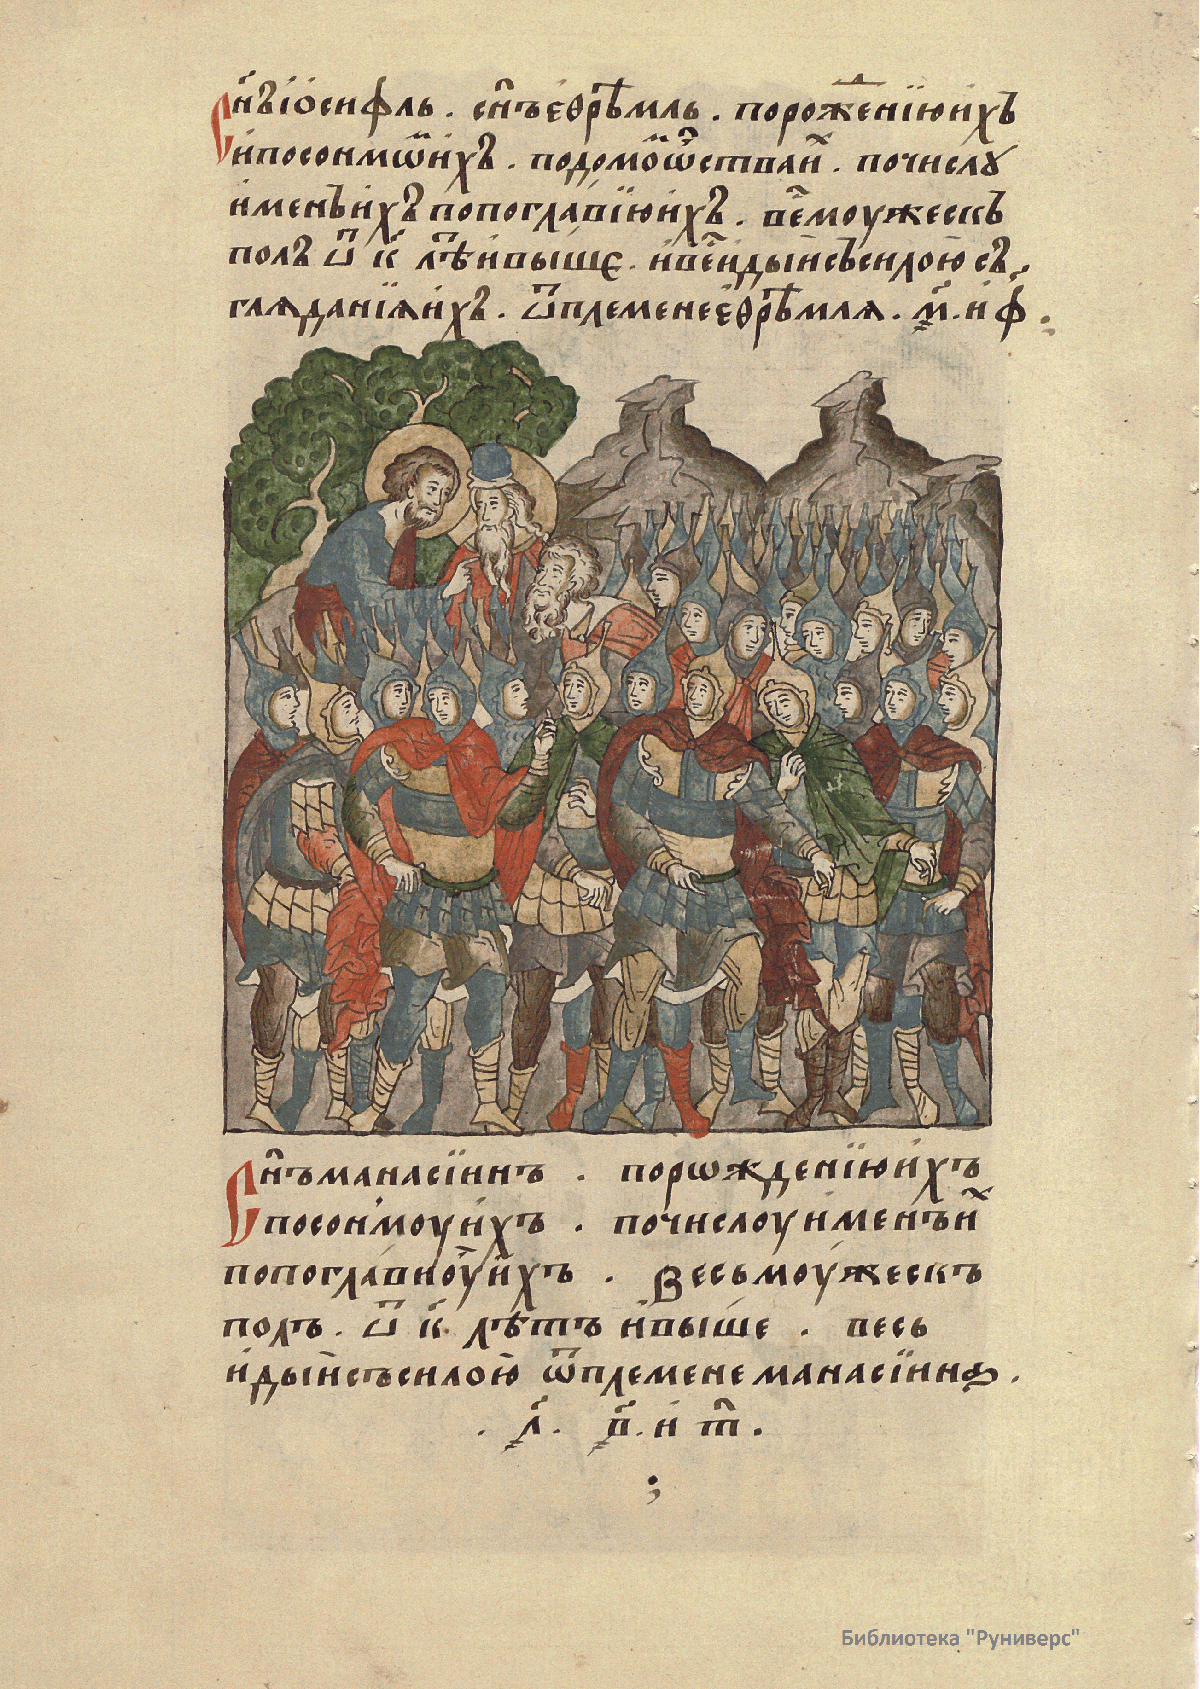 Сн҃ъ іѡсифль . сн҃ъ єѳрѣмль . порожⷣенїю ихъ
и по сонмѡⷨ ихъ . по домоⷨ ѿєства иⷯ . по числу
именъ ихъ по поглавїю ихъ . веⷭ моужескъ
полъ ѿ к҃ лѣⷮ и выше . и веⷭ идыи съ силою съ
глѧданїѧ ихъ . ѿ племене єѳрѣмлѧ . ҂м҃ . и ф҃ .
Сн҃ъ манасїинъ . по рѡждению ихъ
по сонмоу ихъ . по числоу именъ иⷯ
по поглавноу ихъ . Весь моужескъ
полъ . ѿ к҃ лѣтъ и выше . весь
идыи съ силою ѿ племене манасїинѧ .
. ҂л҃ . ҂в҃ . и т҃ .
Библиотека "Руниверс"